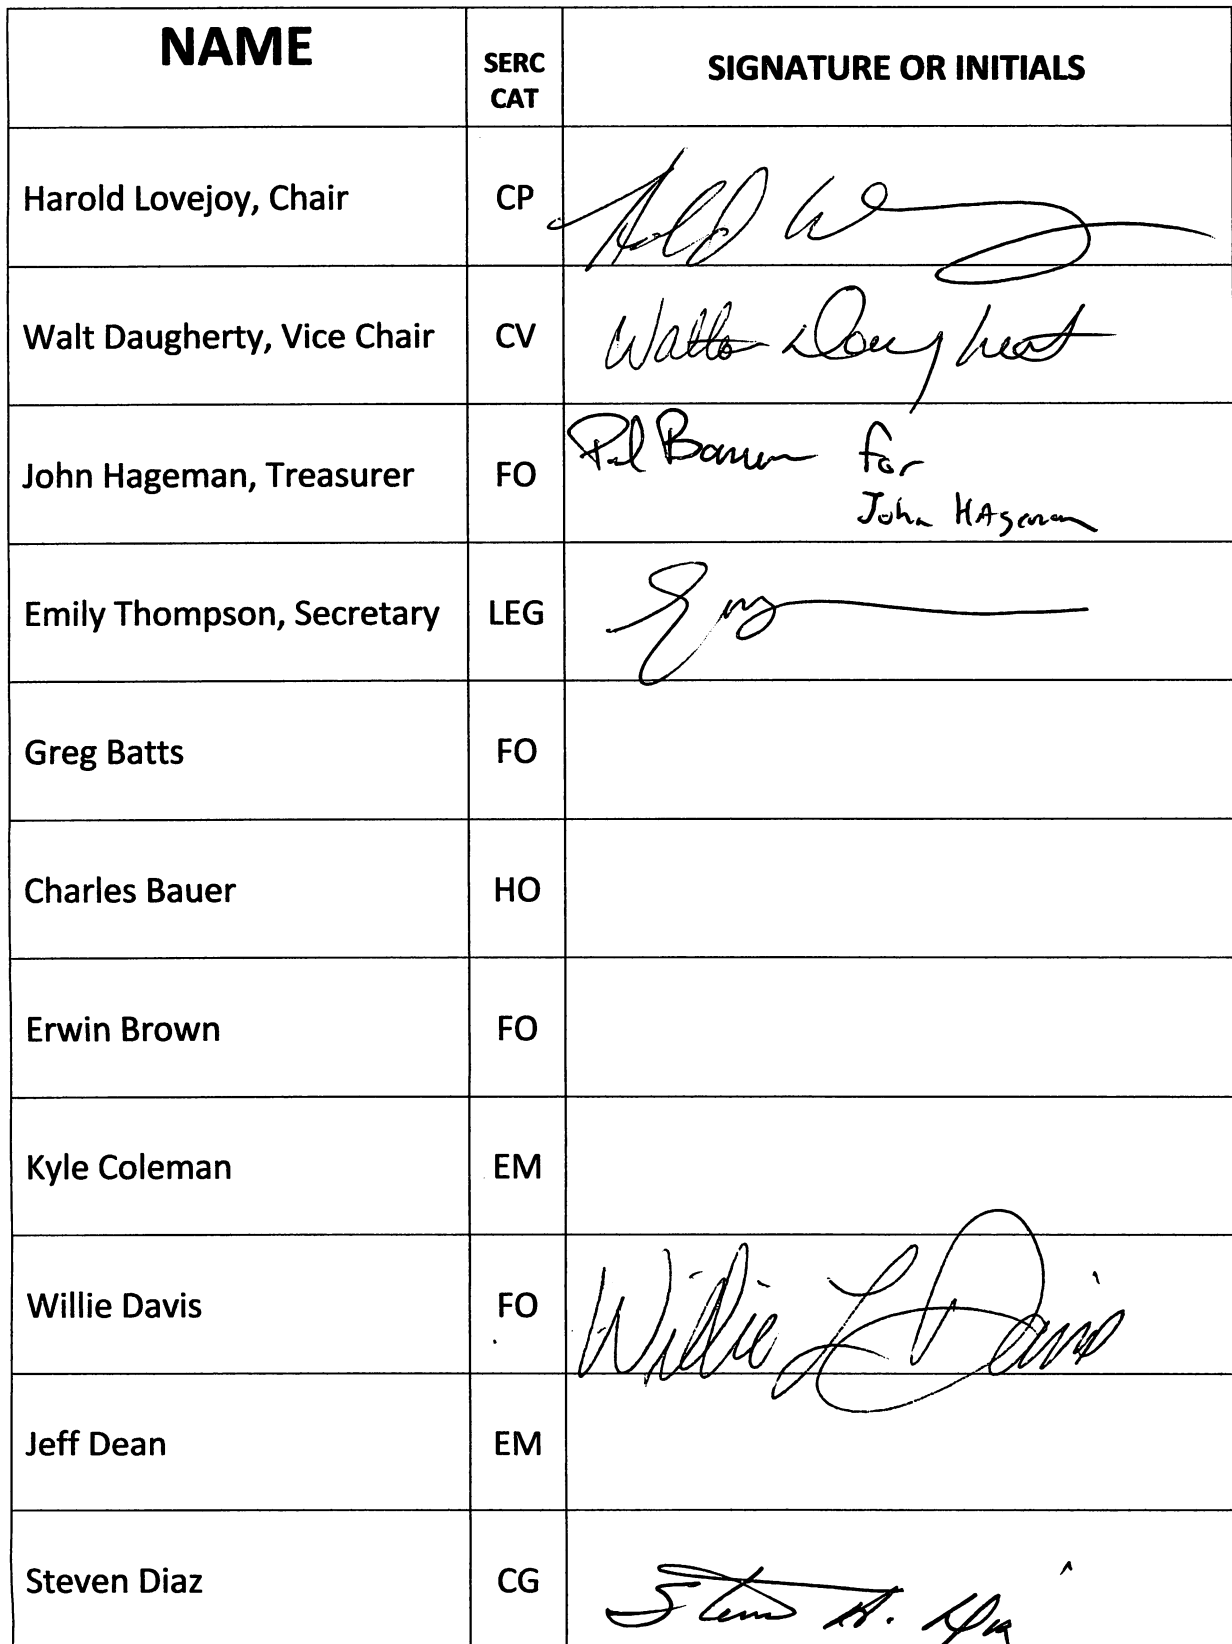 NAME
SERC
CAT
SIGNATURE OR INITIALS
Harold Lovejoy, Chair
CP
Walt Daugherty, Vice Chair
CV
John Hageman, Treasurer
FO
for
John HAgeman
Emily Thompson, Secretary
LEG
Greg Batts
FO
Charles Bauer
HO
Erwin Brown
FO
Kyle Coleman
EM
Willie Davis
FO
Willie L Davis
Jeff Dean
EM
Steven Diaz
CG